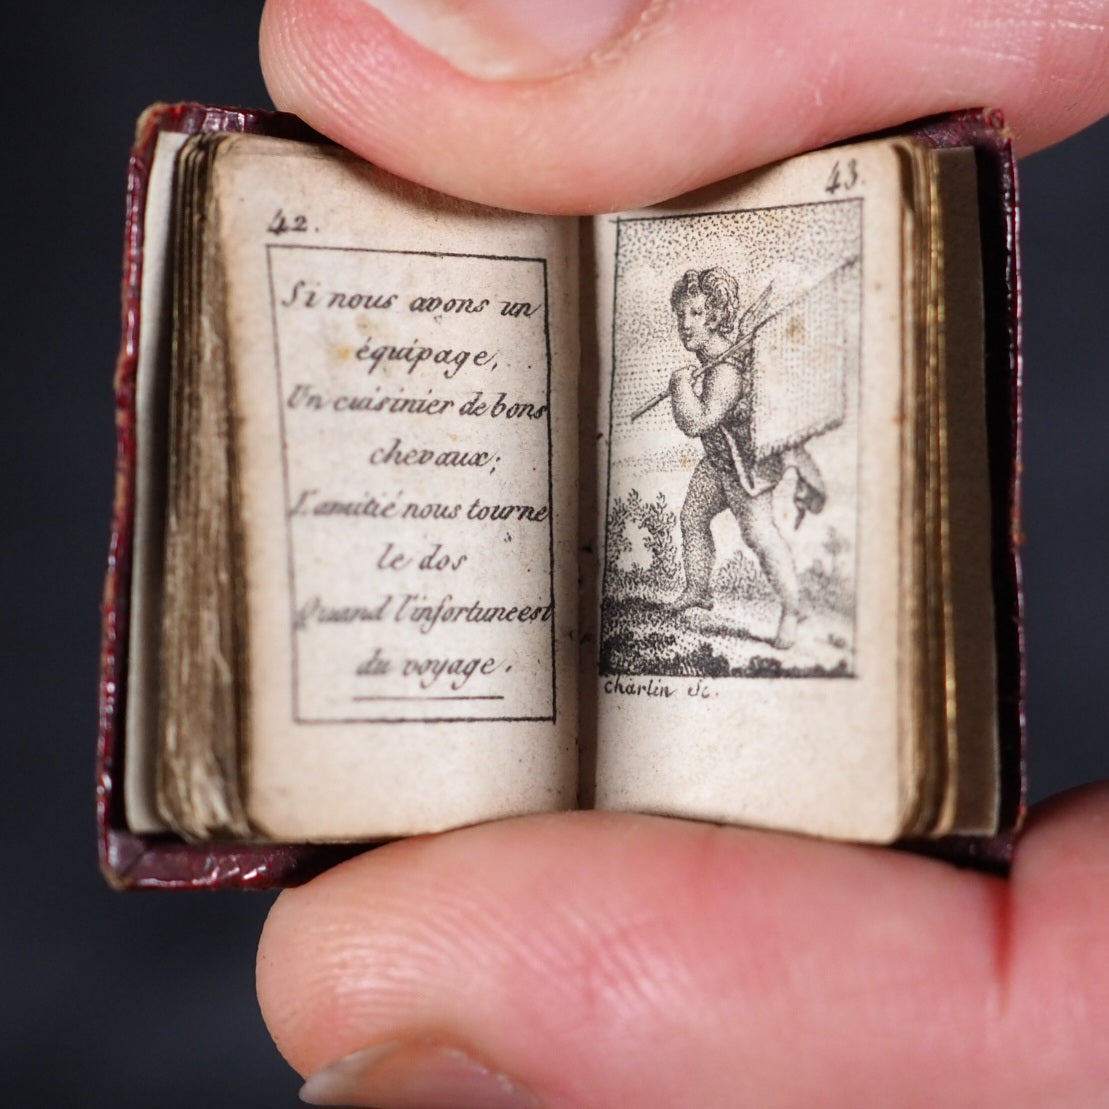 42.
Si nous avons un
équipage,
Un cuisinier de bons
chevaux;
L'amitié nous tourne
le dos
Quand l'infortune est
du voyage.
43.
Charlin Sc.